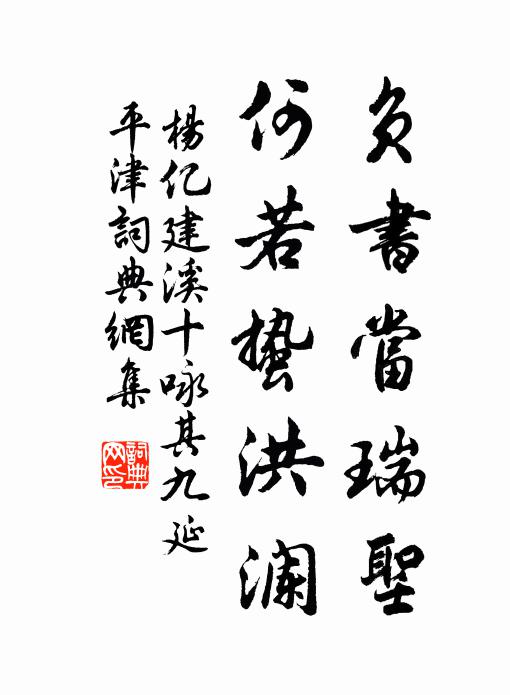 負書當瑞聖
何若蟄洪瀾
楊亿建溪十咏其九延
平津詞典網集
詞典网印